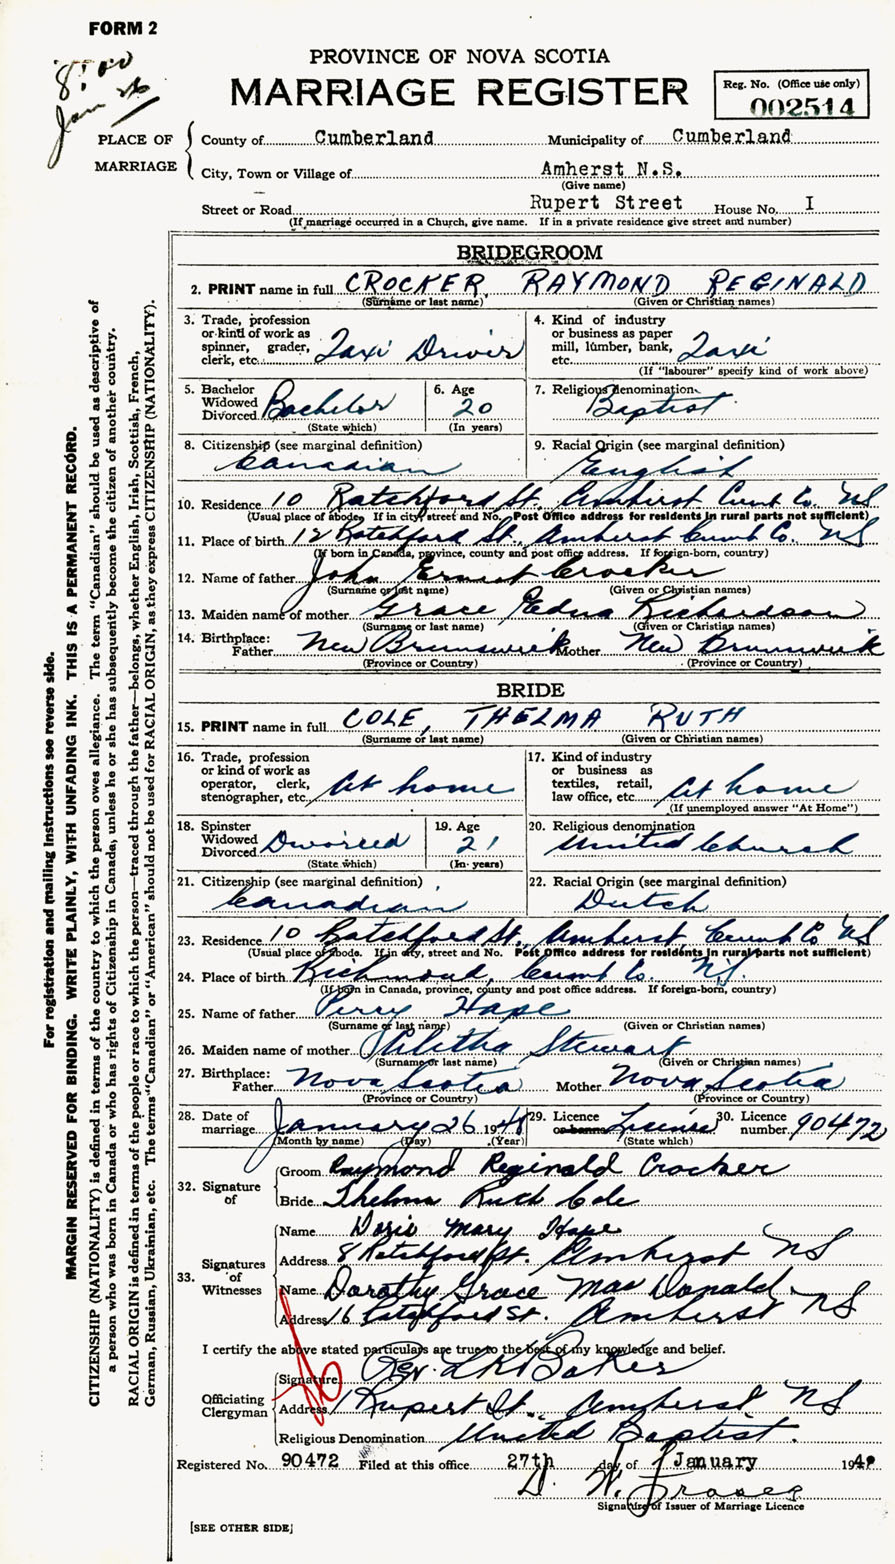 FORM 2
PROVINCE OF NOVA SCOTIA
MARRIAGE REGISTER
Reg. No. (Office use only)
002514
8:00
Jan 26
PLACE OF MARRIAGE
County of Cumberland Municipality of Cumberland
City, Town or Village of Amherst N.S.
(Give name)
Street or Road Rupert Street House No. I
(If marriage occurred in a Church, give name. If in a private residence give street and number)
For registration and mailing instructions see reverse side.
MARGIN RESERVED FOR BINDING. WRITE PLAINLY, WITH UNFADING INK. THIS IS A PERMANENT RECORD.
CITIZENSHIP (NATIONALITY) is defined in terms of the country to which the person owes allegiance. The term "Canadian" should be used as descriptive of
a person who was born in Canada or who has rights of Citizenship in Canada, unless he or she has subsequently become the citizen of another country.
RACIAL ORIGIN is defined in terms of the people or race to which the person—traced through the father—belongs, whether English, Irish, Scottish, French,
German, Russian, Ukrainian, etc. The terms "Canadian" or "American" should not be used for RACIAL ORIGIN, as they express CITIZENSHIP (NATIONALITY).
BRIDEGROOM
2. PRINT name in full CROCKER, RAYMOND REGINALD
(Surname or last name) (Given or Christian names)
3. Trade, profession or kind of work as spinner, grader, clerk, etc. Taxi Driver
4. Kind of industry or business as paper mill, lumber, bank, etc. Taxi
(If "labourer" specify kind of work above)
5. Bachelor Widowed Divorced Bachelor
(State which)
6. Age 20
(In years)
7. Religious denomination Baptist
8. Citizenship (see marginal definition) Canadian
9. Racial Origin (see marginal definition) English
10. Residence 10 Ratchford St. Amherst Cumb Co. NS
(Usual place of abode. If in city, street and No. Post Office address for residents in rural parts not sufficient)
11. Place of birth 12 Ratchford St. Amherst Cumb Co. NS
(If born in Canada, province, county and post office address. If foreign-born, country)
12. Name of father John Ernest Crocker
(Surname or last name) (Given or Christian names)
13. Maiden name of mother Grace Edna Richardson
(Surname or last name) (Given or Christian names)
14. Birthplace: Father New Brunswick Mother New Brunswick
(Province or Country) (Province or Country)
BRIDE
15. PRINT name in full COLE, THELMA RUTH
(Surname or last name) (Given or Christian names)
16. Trade, profession or kind of work as operator, clerk, stenographer, etc. At home
17. Kind of industry or business as textiles, retail, law office, etc. At home
(If unemployed answer "At Home")
18. Spinster Widowed Divorced Divorced
(State which)
19. Age 21
(In years)
20. Religious denomination United Church
21. Citizenship (see marginal definition) Canadian
22. Racial Origin (see marginal definition) Dutch
23. Residence 10 Ratchford St., Amherst Cumb Co NS
(Usual place of abode. If in city, street and No. Post Office address for residents in rural parts not sufficient)
24. Place of birth Richmond, Cumb Co. N.S.
(If born in Canada, province, county and post office address. If foreign-born, country)
25. Name of father Perry Hape
(Surname or last name) (Given or Christian names)
26. Maiden name of mother Stewart
(Surname or last name) (Given or Christian names)
27. Birthplace: Father Nova Scotia Mother Nova Scotia
(Province or Country) (Province or Country)
28. Date of marriage January 26 194
(Month by name) (Day) (Year)
29. Licence or banns License
(State which)
30. Licence number 90472
32. Signature of
Groom Raymond Reginald Crocker
Bride Thelma Ruth Cole
33. Signatures of Witnesses
Name Doris Mary Hape
Address 8 Ratchford St. Amherst NS
Name Dorothy Grace MacDonald
Address 16 Ratchford St. Amherst NS
I certify the above stated particulars are true to the best of my knowledge and belief.
Officiating Clergyman
Signature Rev. L K Baker
Address 1 Rupert St., Amherst NS
Religious Denomination United Baptist.
Registered No. 90472 Filed at this office 27th day of January 194
D. W. Fraser
Signature of Issuer of Marriage Licence
[SEE OTHER SIDE]